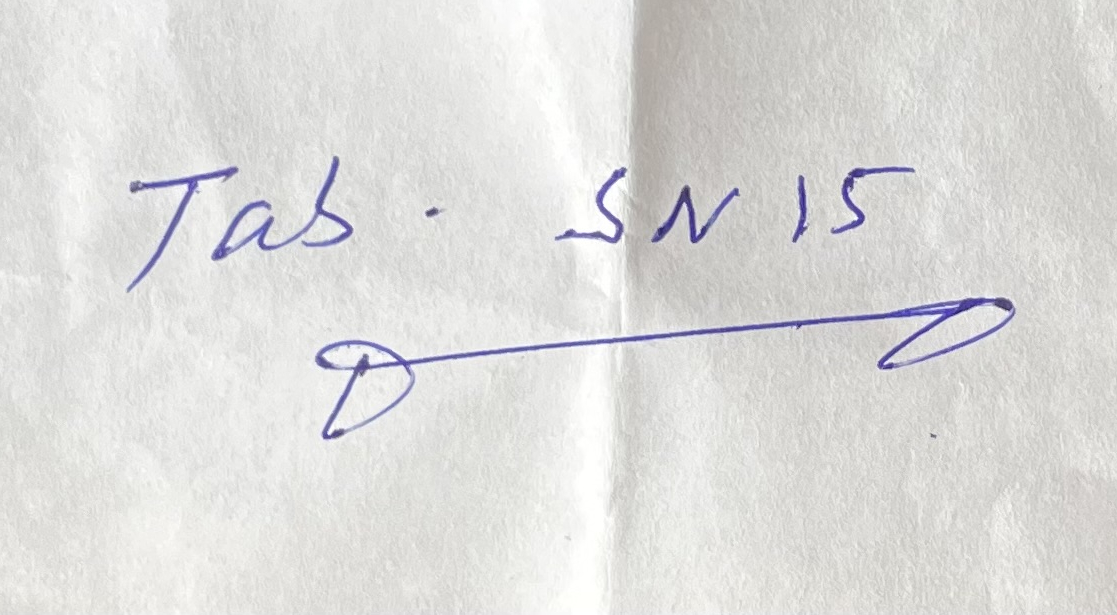 Tab. SN 15